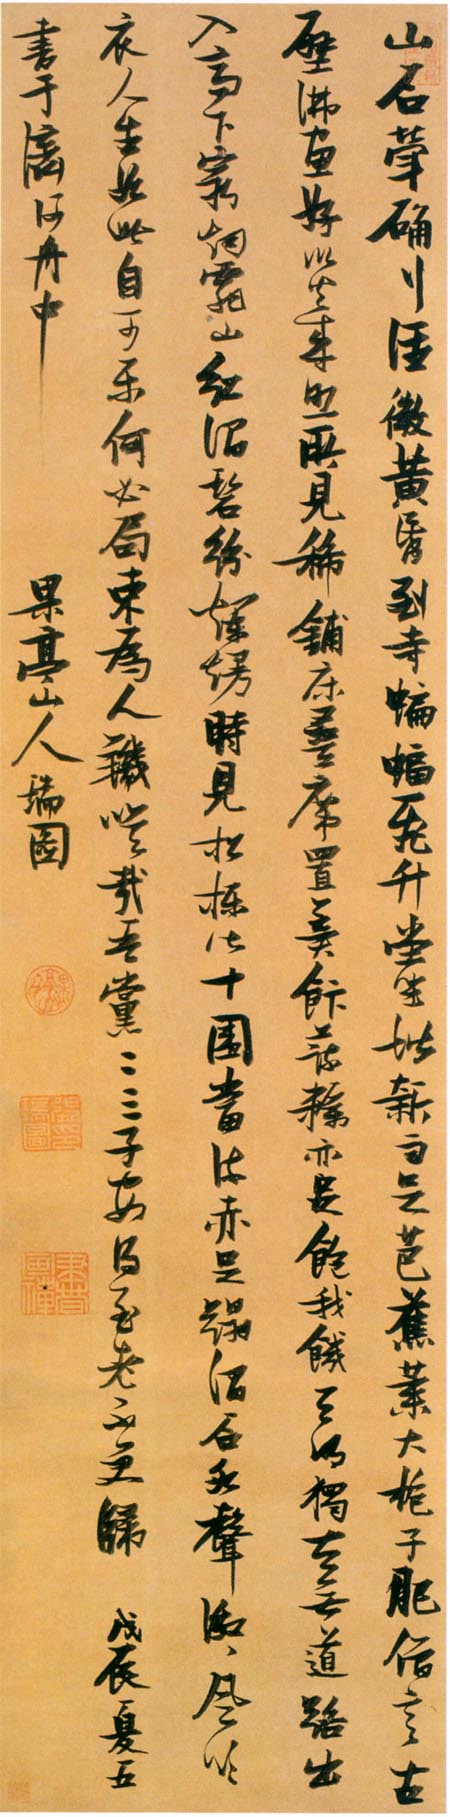 山石犖确行徑微黃昏到寺蝙蝠飛升堂坐階新雨足芭蕉葉大梔子肥僧言古
壁佛畫好以火來照所見稀鋪床拂席置羹飯蔬糲亦足飽我饑天明獨去無道路出
入高下窮烟霏山紅澗碧紛爛熳時見松櫪皆十圍當流赤足蹋澗石水聲激〻風吹
衣人生如此自可樂何必局束為人鞿嗟哉吾黨二三子安得至老不更歸 戊辰夏五
書于河舟中 果亭山人瑞圖
張瑞圖印